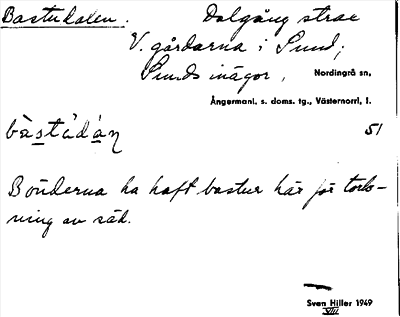 Bastudalen. Dalgång strax
V. gårdarna i Sund;
Sunds inägor, Nordingrå sn,
Ångermanl. s. doms. tg., Västernorrl. l.
bàstádàn 51
Bönderna ha haft bastur här för tork-
ning av säd.
Sven Hiller 1949
VIII